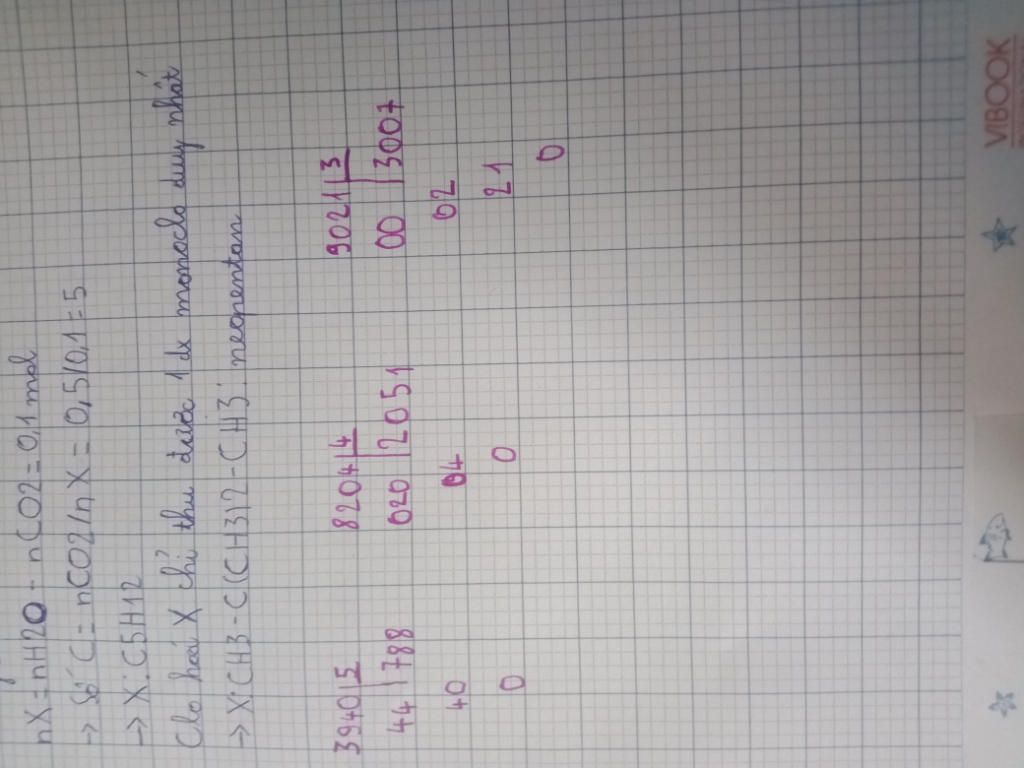 nX = nH2O - nCO2 = 0,1 mol
-> Số C = nCO2/nX = 0,5/0,1 = 5
-> X: C5H12
Clo hoá X chỉ thu được 1 dx monoclo duy nhất
-> X: CH3-C(CH3)2-CH3: neopentan
3940 5 8204 4 9021 3
44 788 020 2051 00 3007
40 04 02
0 0 21
0
VIBOOK